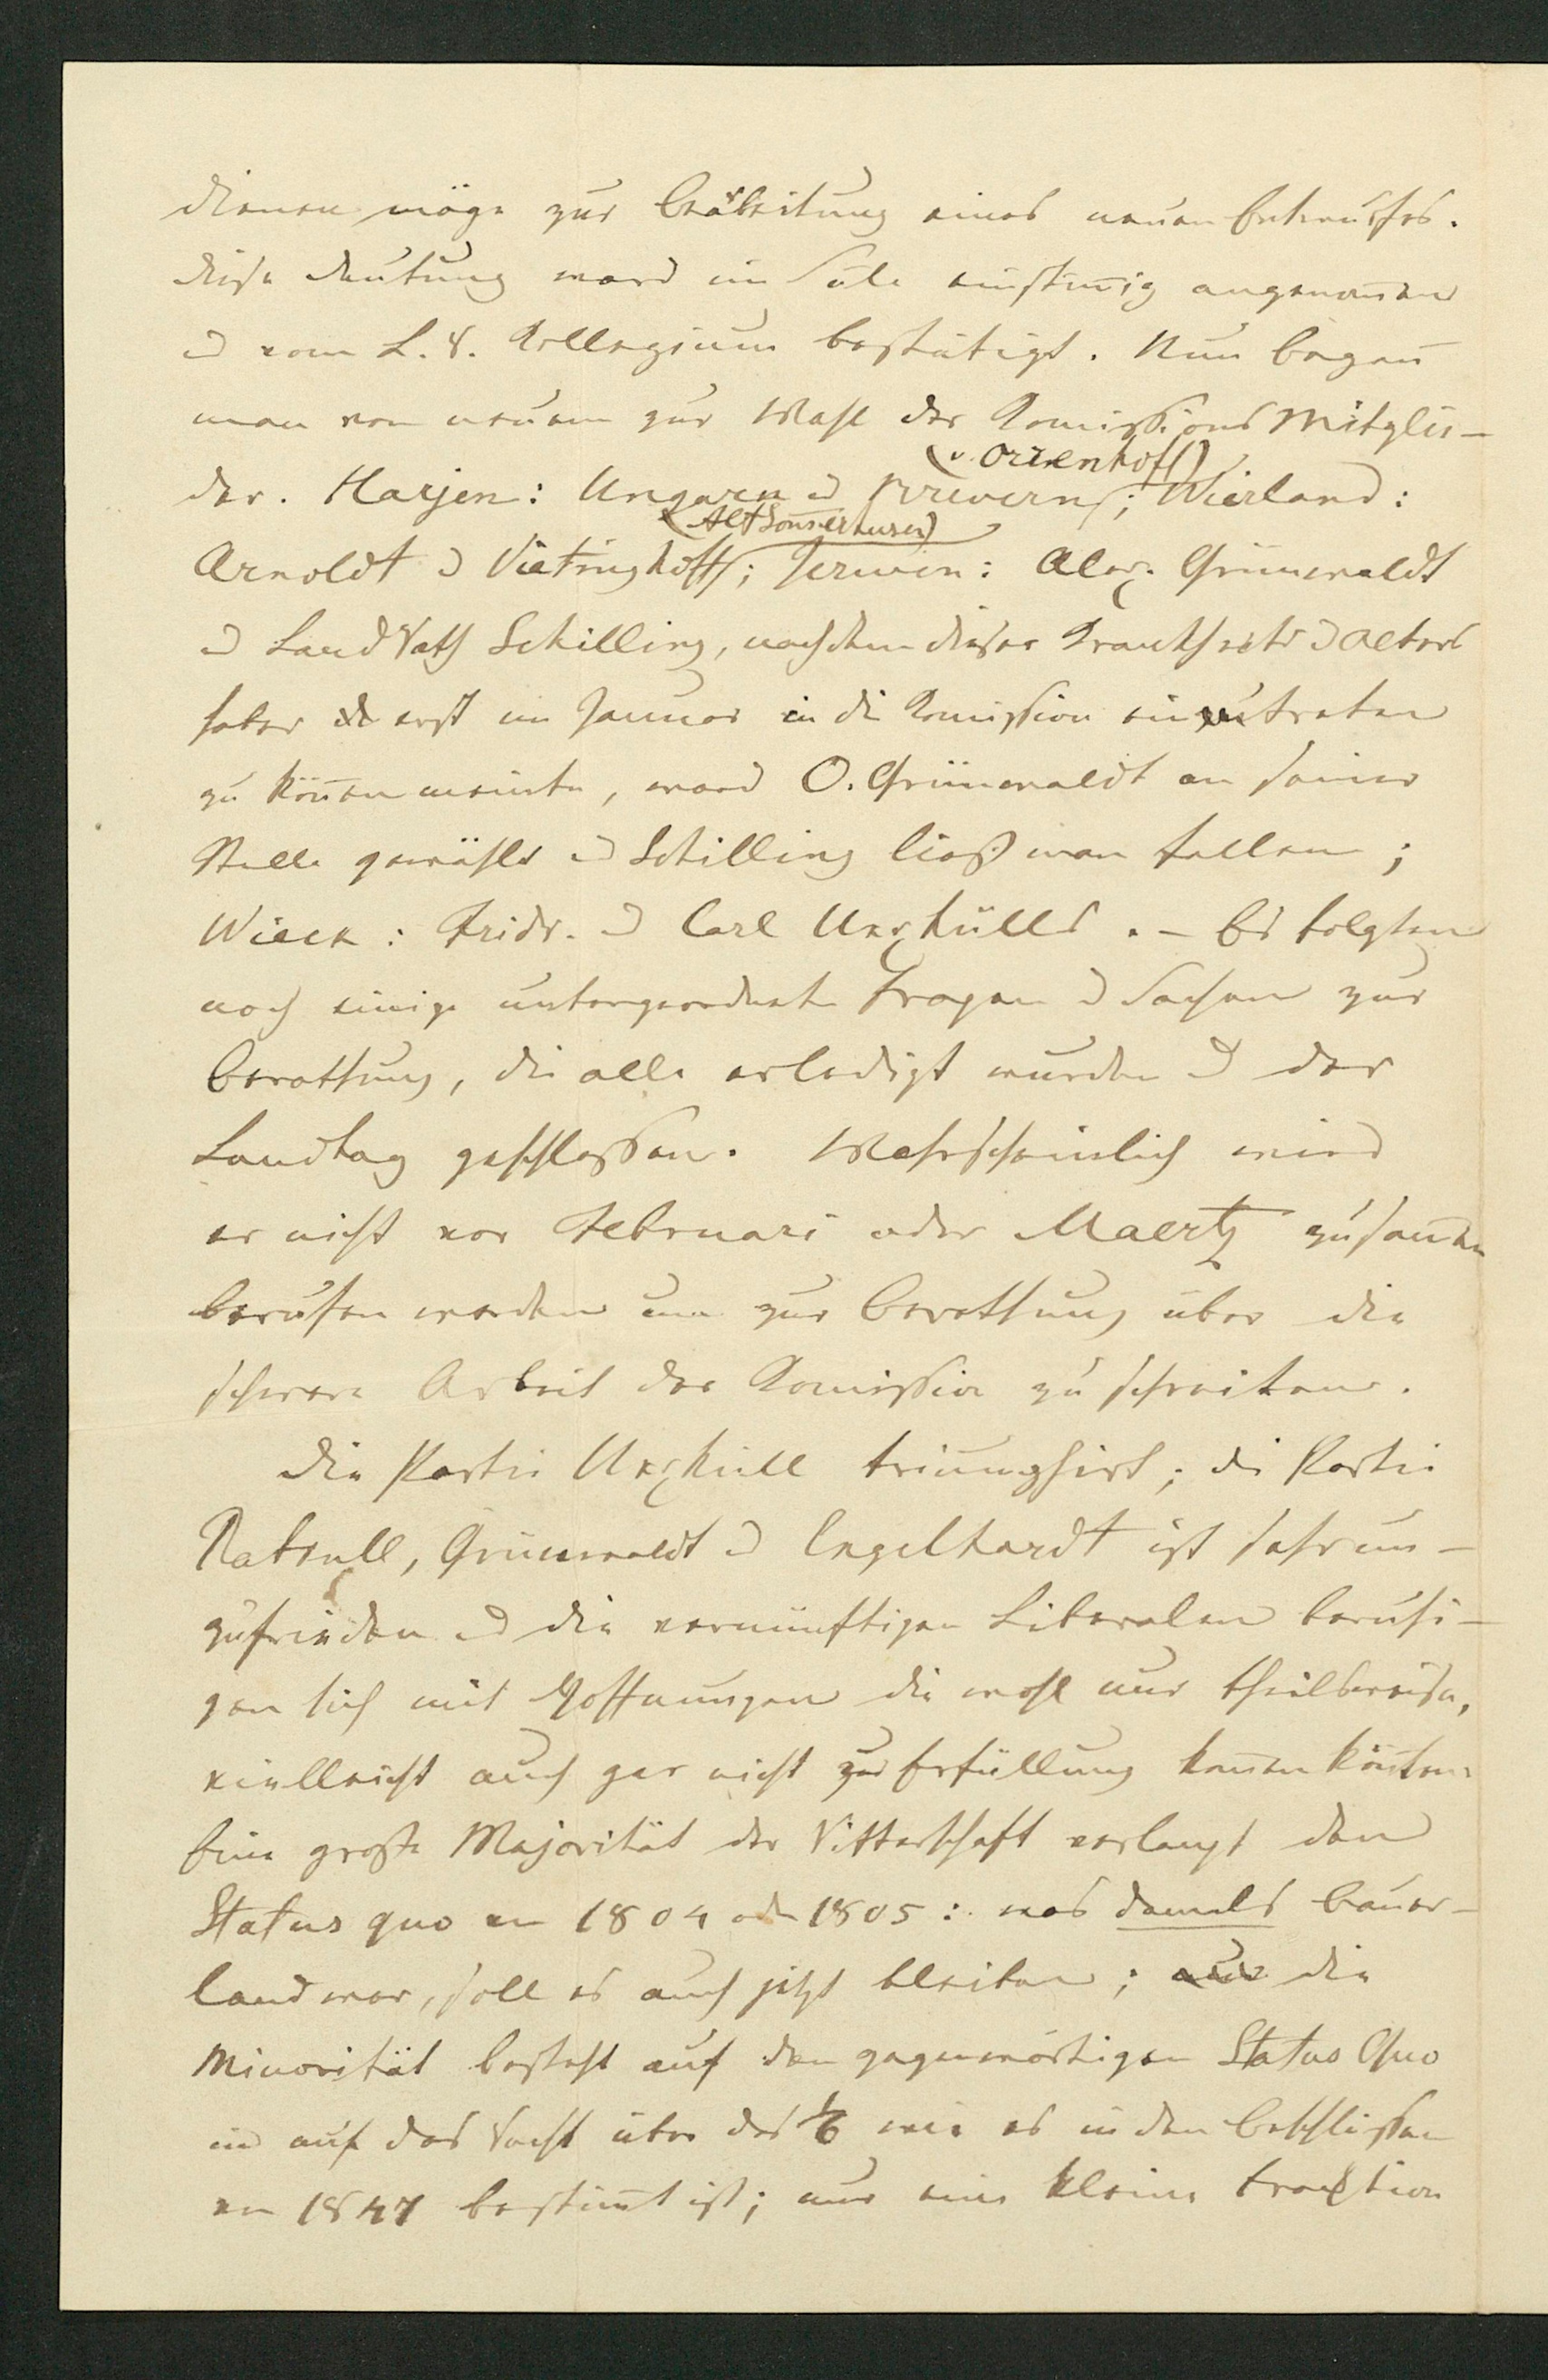 dienen möge zur Bearbeitung eines neuen Entwurfes.
Diese Deutung ward im Sale einstimig angenomen
u vom L. R. Kollegium bestätigt. Nun began
man von neuem zur Wahl der Komissions Mitglie-
(v. Orrenhof)
der. Harjen: Ungern u Brevern; Wierland:
(Alt Somerhusen)
Arnoldt u Vietinghoff; Jerwen: Alex. Grünewaldt
u Landrath Schilling, nachdem dieser Krankheits u Alters
halber erst im Januar in die Komission einzutreten
zu könen meinte, ward O. Grünewaldt an seiner
Stelle gewählt u Schilling ließ man fallen;
Wieck: Fridr. u Carl Uexkülls. – Es folgten
noch einige untergeordnete Fragen u Sachen zur
Berathung, die alle erledigt wurden u der
Landtag geschlossen. Wahrscheinlich wird
er nicht vor Februari oder Maertz zusamen
berufen werden um zur Berathung über die
schwere Arbeit der Komission zu schreiten.
Die Partei Uexküll triumphirt; die Partei
Patkull, Grünewaldt u Engelhardt ist sehr un-
zufrieden u die vernünftigen Liberalen beruhi-
gen sich mit Hoffnungen die wohl nur theilweise,
vielleicht auch gar nicht zur Erfüllung komen könten
Eine große Majorität der Ritterschaft verlangt den
Status quo von 1804 oder 1805: was damals Bauer-
land war, soll es auch jetzt bleiben; die
Minorität besteht auf den gegenwärtigen Status Quo
und auf das Recht über das 1/6 wie es in den Beschlüssen
von 1847 bestimt ist; nur eine kleine Fraction